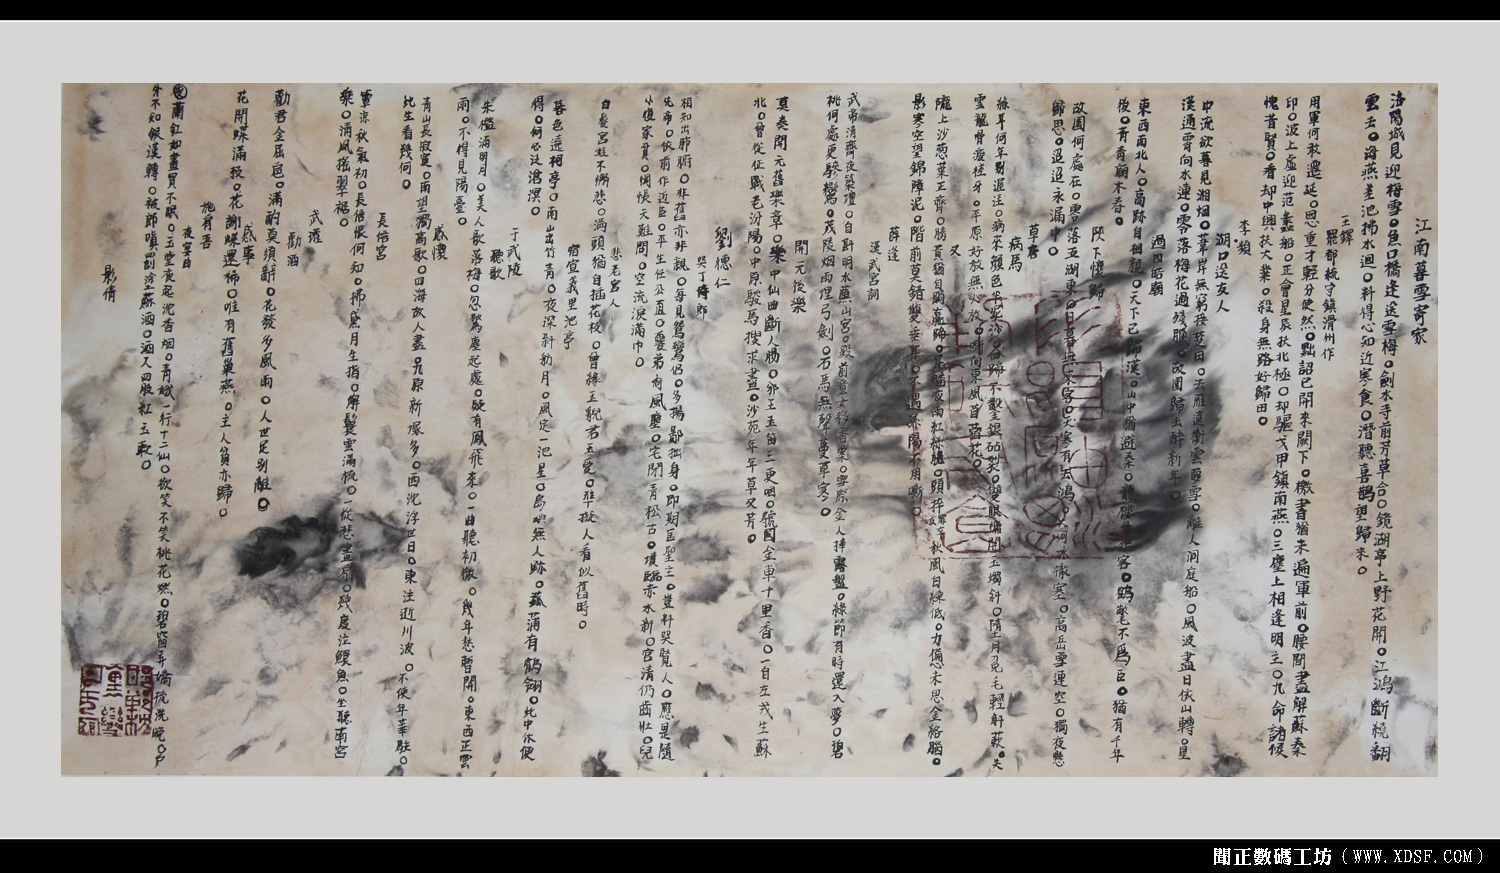 江南暮雪寄家
洛陽城見迎梅雪。魚口橋逢送雪梅。劍水寺前芳草合。鏡湖亭上野花開。江鴻斷續翻
雲去。海燕差池拂水迴。料得心知近寒食。潛聽喜鵲望歸來。
王鐸
罷都統守鎮滑州作
用軍何敢遷延。恩重才輕分使然。黜詔已開來闕下。檄書猶未遍軍前。腰間盡解蘇秦
印。波上虛迎范蠡船。正會星辰扶北極。却驅戈甲鎮南燕。三塵上相逢明主。九命諸侯
愧昔賢。看却中興扶大業。殺身無路好歸田。
李頻
湖口送友人
中流欲暮見湘烟。葦岸無窮接楚田。去雁遠衝雲夢雪。離人獨上洞庭船。風波盡日依山轉。星
漢通霄向水連。零落梅花過殘臘。故園歸去醉新年。
過四皓廟
東西南北人。高跡自相親。天下已歸漢。山中猶避秦。龍樓曾作客。鶴氅不為臣。猶有千年
後。青青廟木春。
陝下懷歸
故園何處在。零落五湖東。日暮無來客。天寒有去鴻。大河冰徹塞。高岳雪連空。獨夜懸
歸思。迢迢永漏中。
曹唐
病馬
又
隴上沙葱葉正齊。
影寒空望錦障泥。階前莫怪雙垂淚。不遇孫陽不用嘶。
薛逢
漢武宮詞
武帝清齋夜築壇。自斟明水醮山宮。殿前童女移香案。雲際金人捧露盤。絳節有時還入夢。碧
桃何處更驂鸞。茂陵烟雨埋弓劍。石馬無聲蔓草寒。
開元後樂
莫奏開元舊樂章。樂中仙曲斷人腸。邠王玉笛三更咽。虢國金車十里香。一自左戈生蘇
北。曾從征戰老汾陽。中原駿馬搜求盡。沙苑年年草又芳。
劉德仁
哭丁侍郎
相知出肺腑。非舊亦非親。每見鴛鸞侶。多揚鄙拙身。即期匡聖主。豈料哭賢人。應是隨
先帝。依前作近臣。平生任公直。愛弟尚風塵。宅閉青松古。墳臨赤水新。官清仍齒壯。兒
小復家貧。惆悵天難問。空流淚滿巾。
悲老宮人
白髮宮娃不解悲。滿頭猶自插花枝。曾緣玉貌君王愛。準擬人看似舊時。
宿宣義里池亭
暮色遶柯亭。南山出竹青。夜深斜舫月。風定一池星。島嶼無人跡。菰蒲有鶴翎。此中休便
得。何必泛滄溟。
于武陵
聽歌
朱檻滿明月。美人歌落梅。忽驚塵起處。疑有鳳飛來。一曲聽初徹。幾年愁暫開。東西正雲
雨。不得見陽臺。
感懷
青山長寂寞。南望獨高歌。四海故人盡。九原新塚多。西沈浮世日。東注逝川波。不使年華駐。
此生看幾何。
長信宮
簟涼秋氣初。長信恨何如。拂黛月生指。解鬟雲滿梳。一從悲畫扇。幾度泣鰥魚。坐聽南宮
樂。清風搖翠裾。
武瓘
勸酒
勸君金屈卮。滿酌莫須辭。花發多風雨。人世足別離。
感事
花開蝶滿枝。花謝蝶還稀。唯有舊巢燕。主人貧亦歸。
施肩吾
夜宴曲
蘭缸如晝買不眠。玉堂夜起沈香烟。青娥一行十二仙。欲笑不笑桃花然。碧窗弄嬌梳洗晚。戶
外不知銀漢轉。被郎嗔罰塗蘇酒。酒入四肢紅玉軟。
彭倩
聞正數碼工坊（WWW.XDSF.COM）